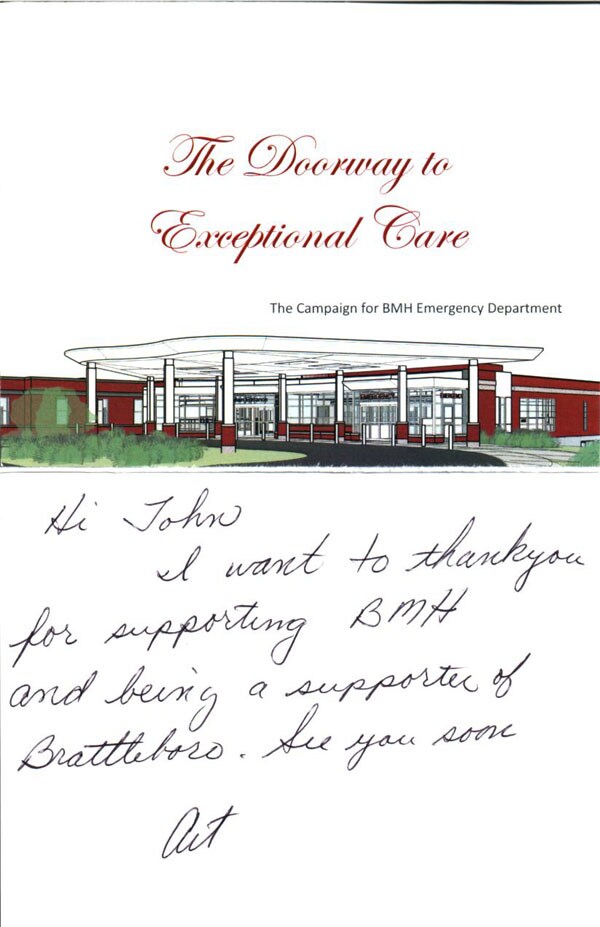 The Doorway to
Exceptional Care
The Campaign for BMH Emergency Department
EMERGENCY
Hi John
I want to thankyou
for supporting BMH
and being a supporter of
Brattleboro. See you soon
Art